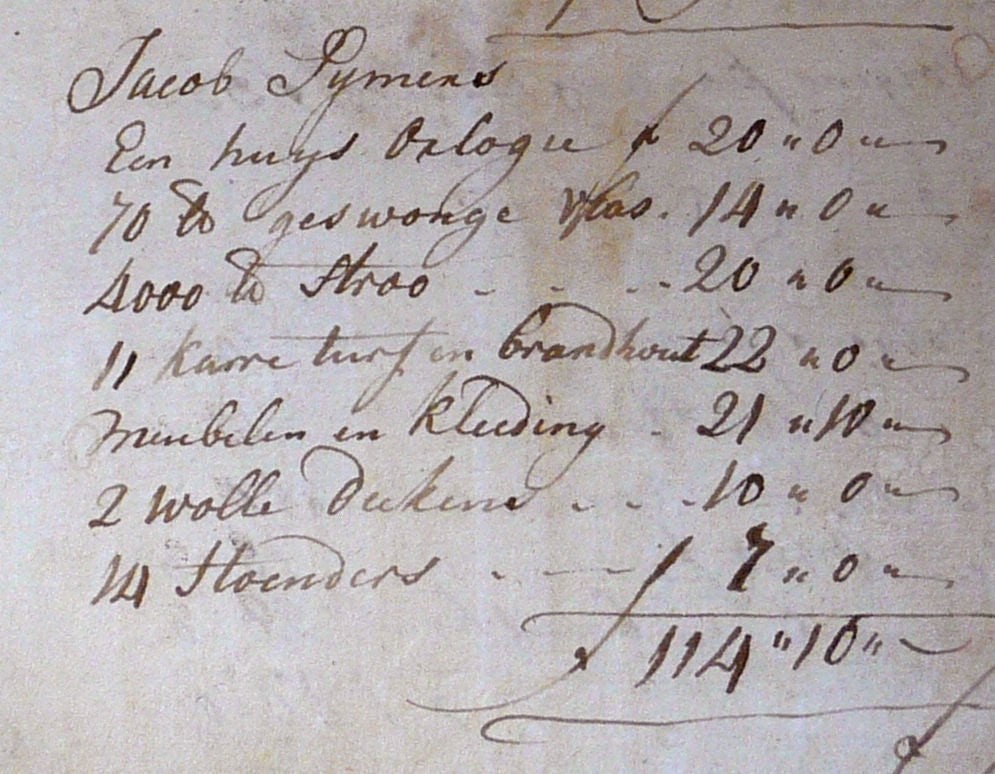 Jacob Pymens
Een huys Orlogie f 20 " 0 " —
70 ℔ geswonge vlas . 14 " 0 " —
4000 ℔ Stroo - - - - 20 " 0 " —
11 karre turf en brandhout 22 " 0 " —
Meubelen en kleeding - 21 " 10 " —
2 wolle Dekens - - - 10 " 0 " —
14 Hoenders - - — f 7 " 0 " —
f 114 " 10 " —